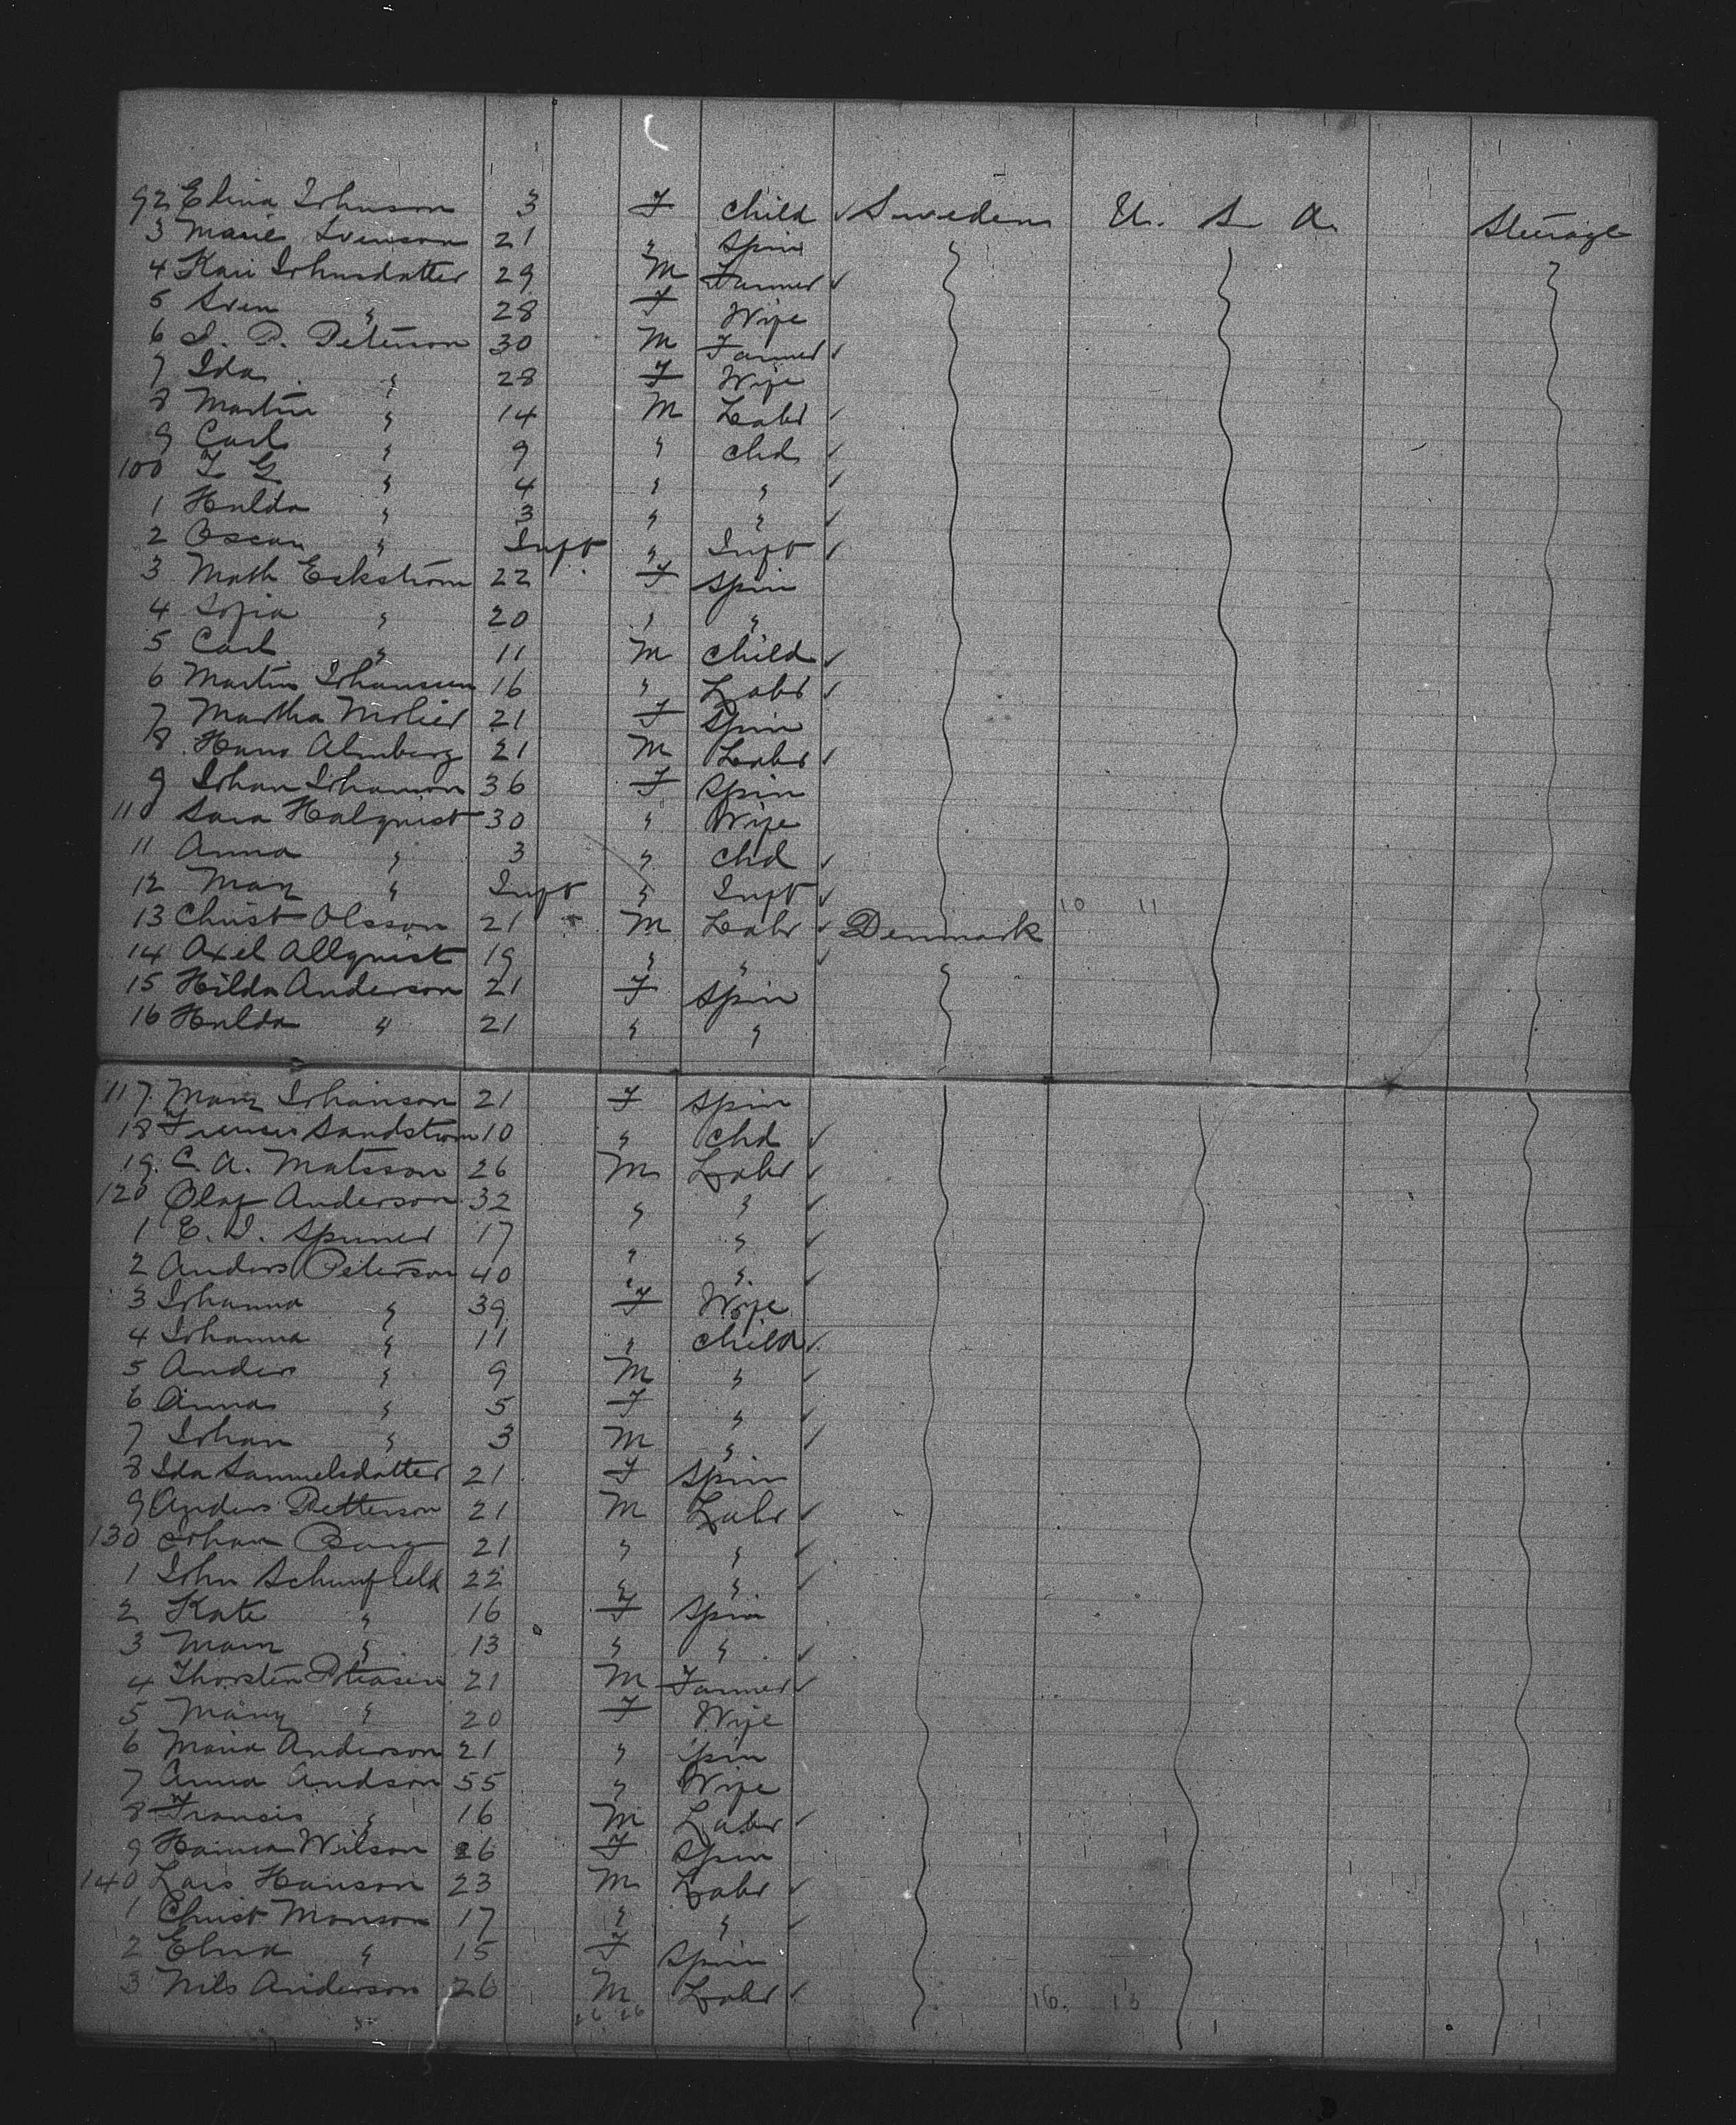 92 Elina Johnson 3 F Child ✓ Sweden U. S. A. Steerage
3 Marie Svenson 21 " Spin
4 Kari Johnsdatter 29 M Farmer ✓
5 Sven " 28 F Wife
6 J. P. Peterson 30 M Farmer ✓
7 Ida " 28 F Wife
8 Martin " 14 M Labr ✓
9 Carl " 9 " Chd ✓
100 " 4 " " ✓
1 Hulda " 3 " " ✓
2 Oscar " Inft " Inft ✓
3 Math Eckstrom 22 F Spin
4 Sofia " 20 " "
5 Carl " 11 M Child ✓
6 Martin Johanson 16 " Labr ✓
7 Martha 21 F Spin
8 Hans Almberg 21 M Labr ✓
9 Johan Johanson 36 F Spin
110 Sara Halquist 30 " Wife
11 Anna " 3 " Chd ✓
12 Mary " Inft " Inft ✓
13 Christ Olsson 21 M Labr ✓ Denmark 10 11
14 Axel Allquist 19 " " ✓
15 Hilda Anderson 21 F Spin
16 Hulda " 21 " "
117 Mary Johanson 21 F Spin
18 Sandstrom 10 " Chd ✓
19 C. A. Matsson 26 M Labr ✓
120 Olaf Anderson 32 " " ✓
1 E. J. 17 " " ✓
2 Anders Peterson 40 " " ✓
3 Johanna " 39 F Wife
4 Johanna " 11 " Child ✓
5 Anders " 9 M " ✓
6 Anna " 5 F " ✓
7 Johan " 3 M " ✓
8 Ida Samuelsdatter 21 F Spin
9 Anders Petterson 21 M Labr ✓
130 Johan 21 " " ✓
1 John 22 " " ✓
2 Kate " 16 F Spin
3 Mary " 13 " " ✓
4 Thorsten 21 M Farmer ✓
5 Mary " 20 F Wife
6 Maria Anderson 21 " Spin
7 Anna Andson 55 " Wife
8 Francis " 16 M Labr ✓
9 Wilson 26 F Spin
140 Lars Hanson 23 M Labr ✓
1 Christ Monson 17 " " ✓
2 Elna " 15 F Spin
3 Nils Anderson 26 M Labr ✓ 16 13
26 26